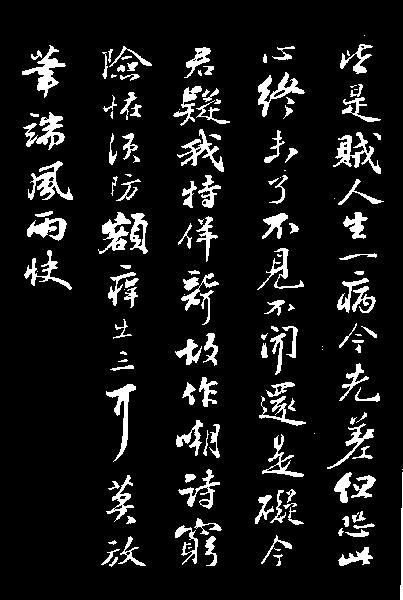 皆是賊人生一病今先差但恐此
心終未了不見不聞還是礙今
君疑我特佯聾故作嘲詩窮
險怪須防額癢出三耳莫放
筆端風雨快